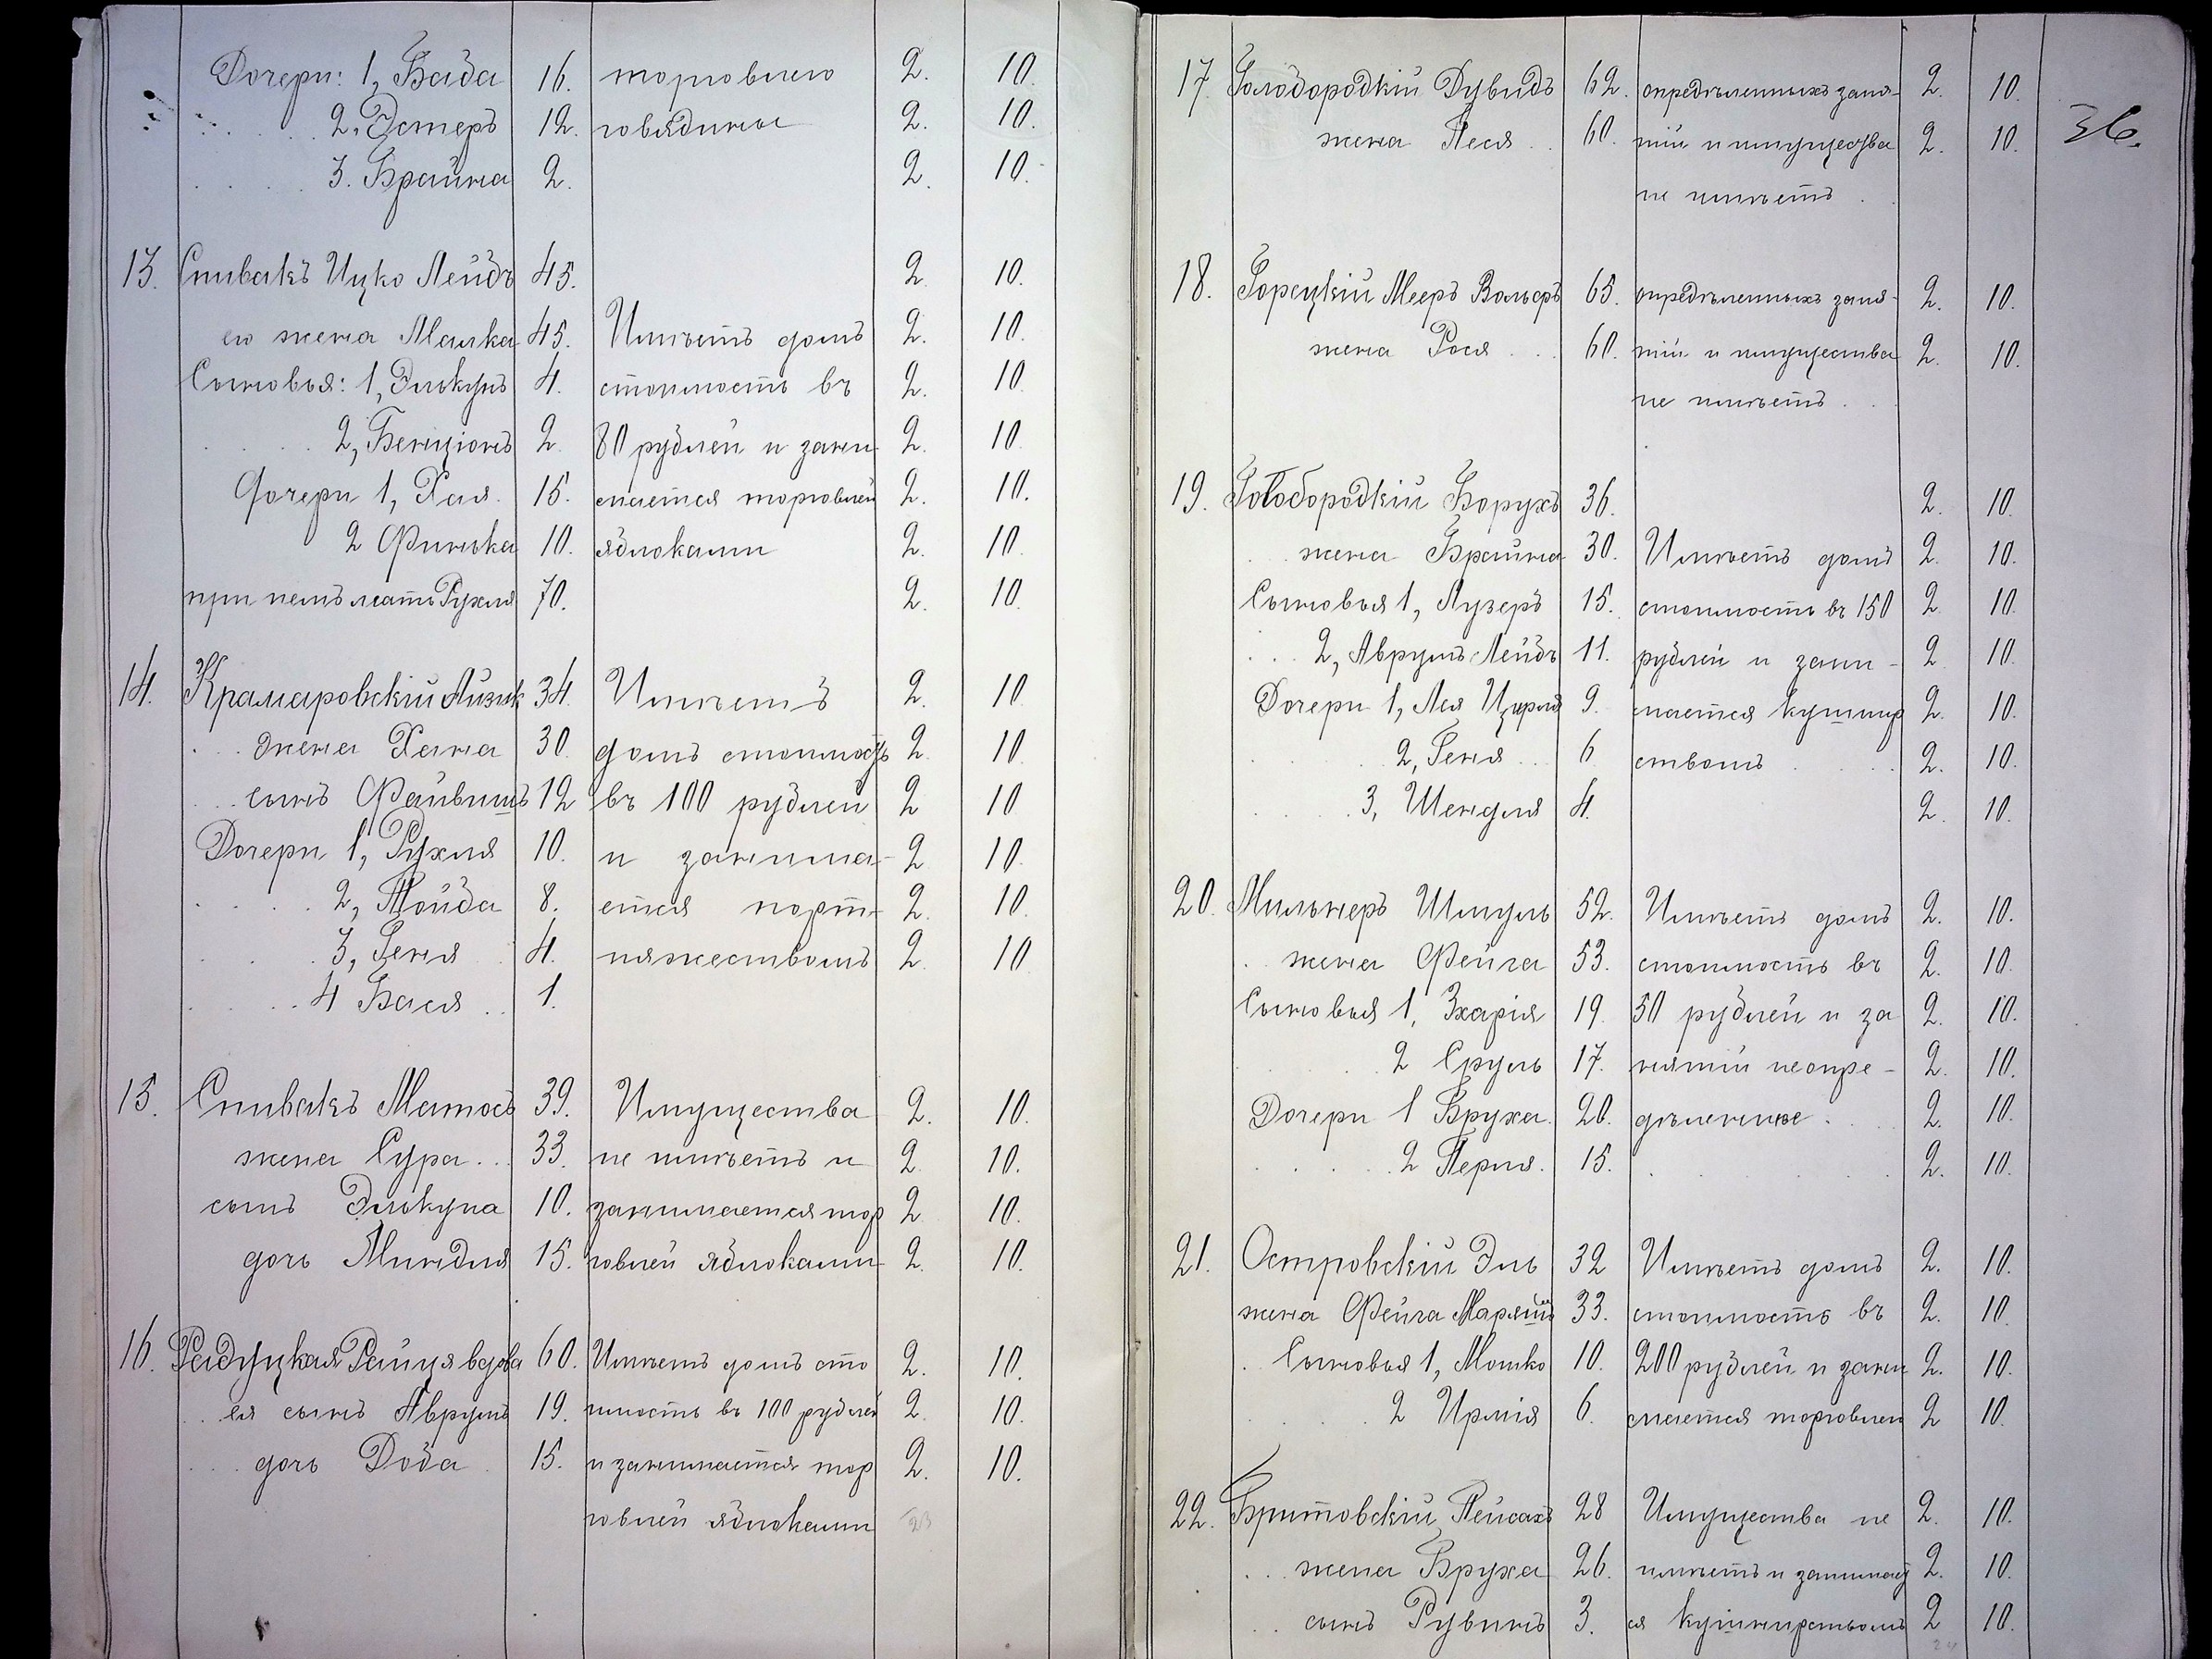 Дочери: 1, Бада 16. торговлею 2. 10.
2, Эстеръ 12. говядиною 2. 10.
3. Брайна 2. 2. 10.
13. Спивакъ Ицко Лейбъ 45. 2. 10.
его жена Малка 45. Имѣетъ домъ 2. 10.
Сыновья: 1, Элькунъ 4. стоимость въ 2. 10.
2, Бенціонъ 2. 80 рублей и зани- 2. 10.
Дочери 1, Хая 15. мается торговлей 2. 10.
2 Финька 10. яблоками 2. 10.
при немъ мать Рухля 70. 2. 10.
14. Крамаровскій Айзик 34. Имѣетъ 2. 10.
жена Хана 30. домъ стоимость 2. 10.
сынъ Файвишъ 12 въ 100 рублей 2 10
Дочери 1, Рухля 10. и занима- 2 10.
2, Тойба 8. ется порт- 2. 10.
3, Геня 4. няжествомъ 2. 10
4 Бася 1.
15. Спивакъ Матосъ 39. Имущества 2. 10.
жена Сура 33. не имѣетъ и 2. 10.
сынъ Элькуна 10. занимается тор 2 10.
дочь Миндля 15. говлей яблоками 2. 10.
16. Радуцкая Райця вдова 60. Имѣетъ домъ сто 2. 10.
ея сынъ Аврумъ 19. имость въ 100 рублей 2. 10.
дочь Доба 15. и занимается тор 2. 10.
говлей яблоками 23
36.
17. Голобородкій Дувидъ 62. опредѣленныхъ заня- 2. 10.
жена Песя 60. тій и имущества 2. 10.
не имѣетъ
18. Горецкій Мееръ Вольфъ 65. опредѣленныхъ заня- 2. 10.
жена Рося 60. тій и имущества 2. 10.
не имѣетъ
19. Голобородкій Борухъ 36. 2. 10.
жена Брайна 30. Имѣетъ домъ 2. 10.
Сыновья 1, Лузеръ 15. стоимость въ 150 2 10.
2, Аврумъ Лейбъ 11. рублей и зани- 2 10.
Дочери 1, Лея Цирля 9. мается кушнир 2. 10.
2, Геня 6 ствомъ 2. 10.
3, Шендля 4. 2. 10.
20. Мильнеръ Шмуль 52. Имѣетъ домъ 2. 10.
жена Фейга 53. стоимость въ 2. 10.
Сыновья 1, Зхарія 19. 50 рублей и за 2. 10.
2 Сруль 17. нятій неопре- 2. 10.
Дочери 1 Бруха 20. дѣленные 2. 10.
2 Перля 15. 2. 10.
21. Островскій Эль 32 Имѣетъ домъ 2. 10.
жена Фейга Маряшъ 33. стоимость въ 2. 10.
Сыновья 1, Мошко 10. 200 рублей и зани 2. 10.
2 Ирмія 6. мается торговлей 2 10.
22. Бритовскій Пейсахъ 28 Имущества не 2. 10.
жена Бруха 26. имѣетъ и занимает 2. 10.
сынъ Рувинъ 3. ся кушнирствомъ 2 10.